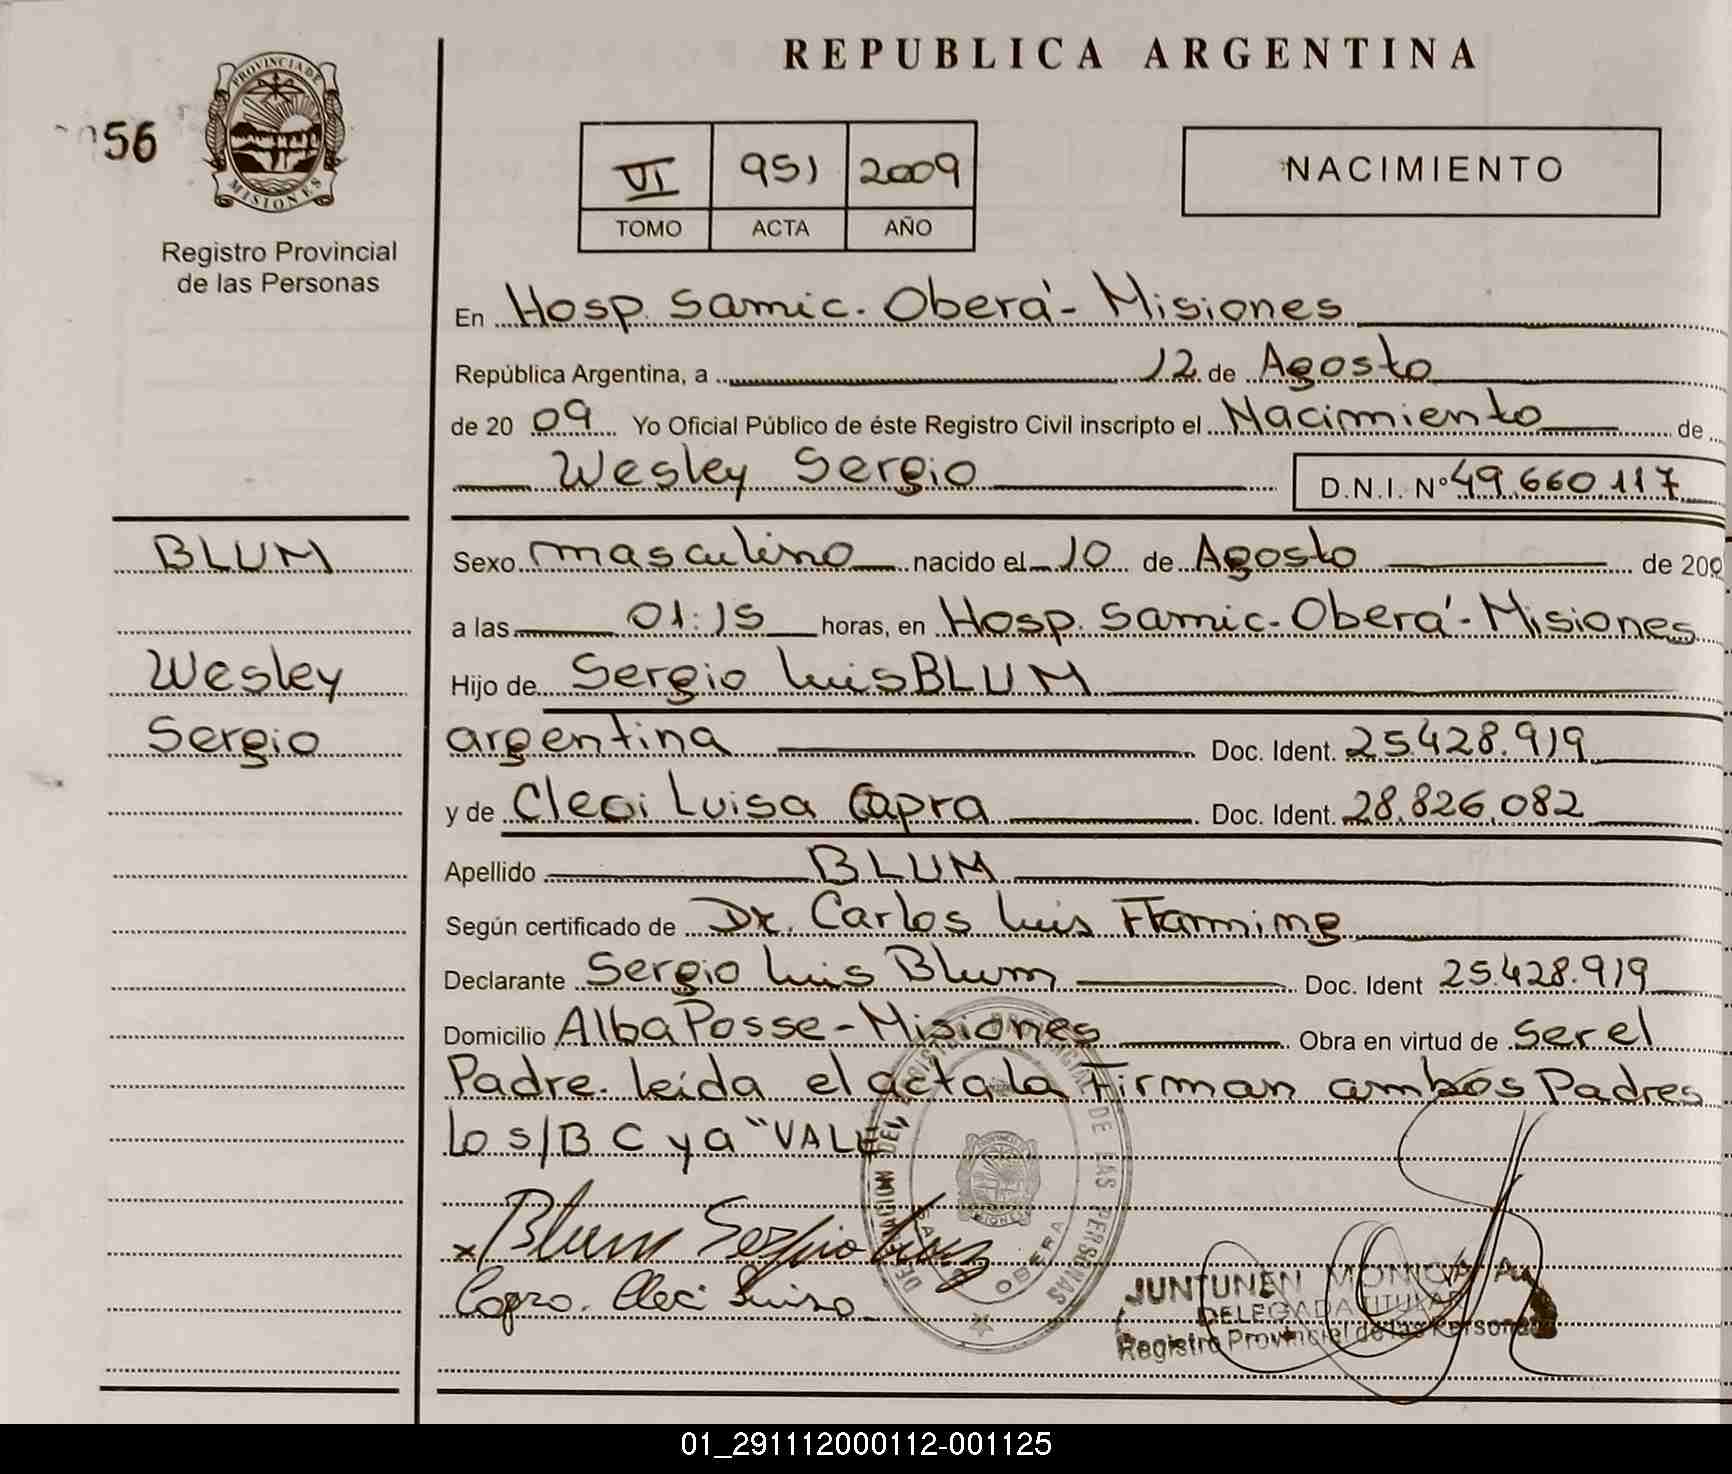 REPUBLICA ARGENTINA
56
PROVINCIA DE
MISIONES
Registro Provincial
de las Personas
VI 951 2009
TOMO ACTA AÑO
NACIMIENTO
En Hosp. Samic. Oberá - Misiones
República Argentina, a 12 de Agosto
de 20 09 Yo Oficial Público de éste Registro Civil inscripto el Nacimiento de
Wesley Sergio D.N.I. Nº 49.660.117
BLUM
Wesley
Sergio
Sexo masculino nacido el 10 de Agosto de 200
a las 01:15 horas, en Hosp. Samic. Oberá - Misiones
Hijo de Sergio Luis BLUM
argentina Doc. Ident. 25.428.919
y de Cleci Luisa Capra Doc. Ident. 28.826.082
Apellido BLUM
Según certificado de Dr. Carlos Luis
Declarante Sergio Luis Blum Doc. Ident 25.428.919
Domicilio Alba Posse - Misiones Obra en virtud de ser el
Padre. leída el acta la Firman ambos Padres
Lo s/B C y a "VALE"
Blum Sergio Luis
Capra. Cleci Luisa
DELEGACION DEL REGISTRO PROVINCIAL DE LAS PERSONAS
OBERA
JUNTUNEN MONICA
DELEGADA TITULAR
Registro Provincial de las Personas
01_291112000112-001125